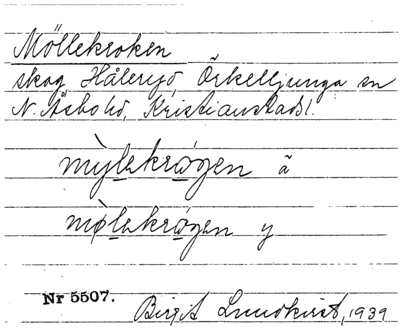 Möllekroken
skog Hålersjö Örkelljunga sn
N. Åsbo hd, Kristianstads l.
mỳlekrǿgen ã
mø̀lekrǿgen y
Nr 5507.
Birgit Lundkvist, 1939